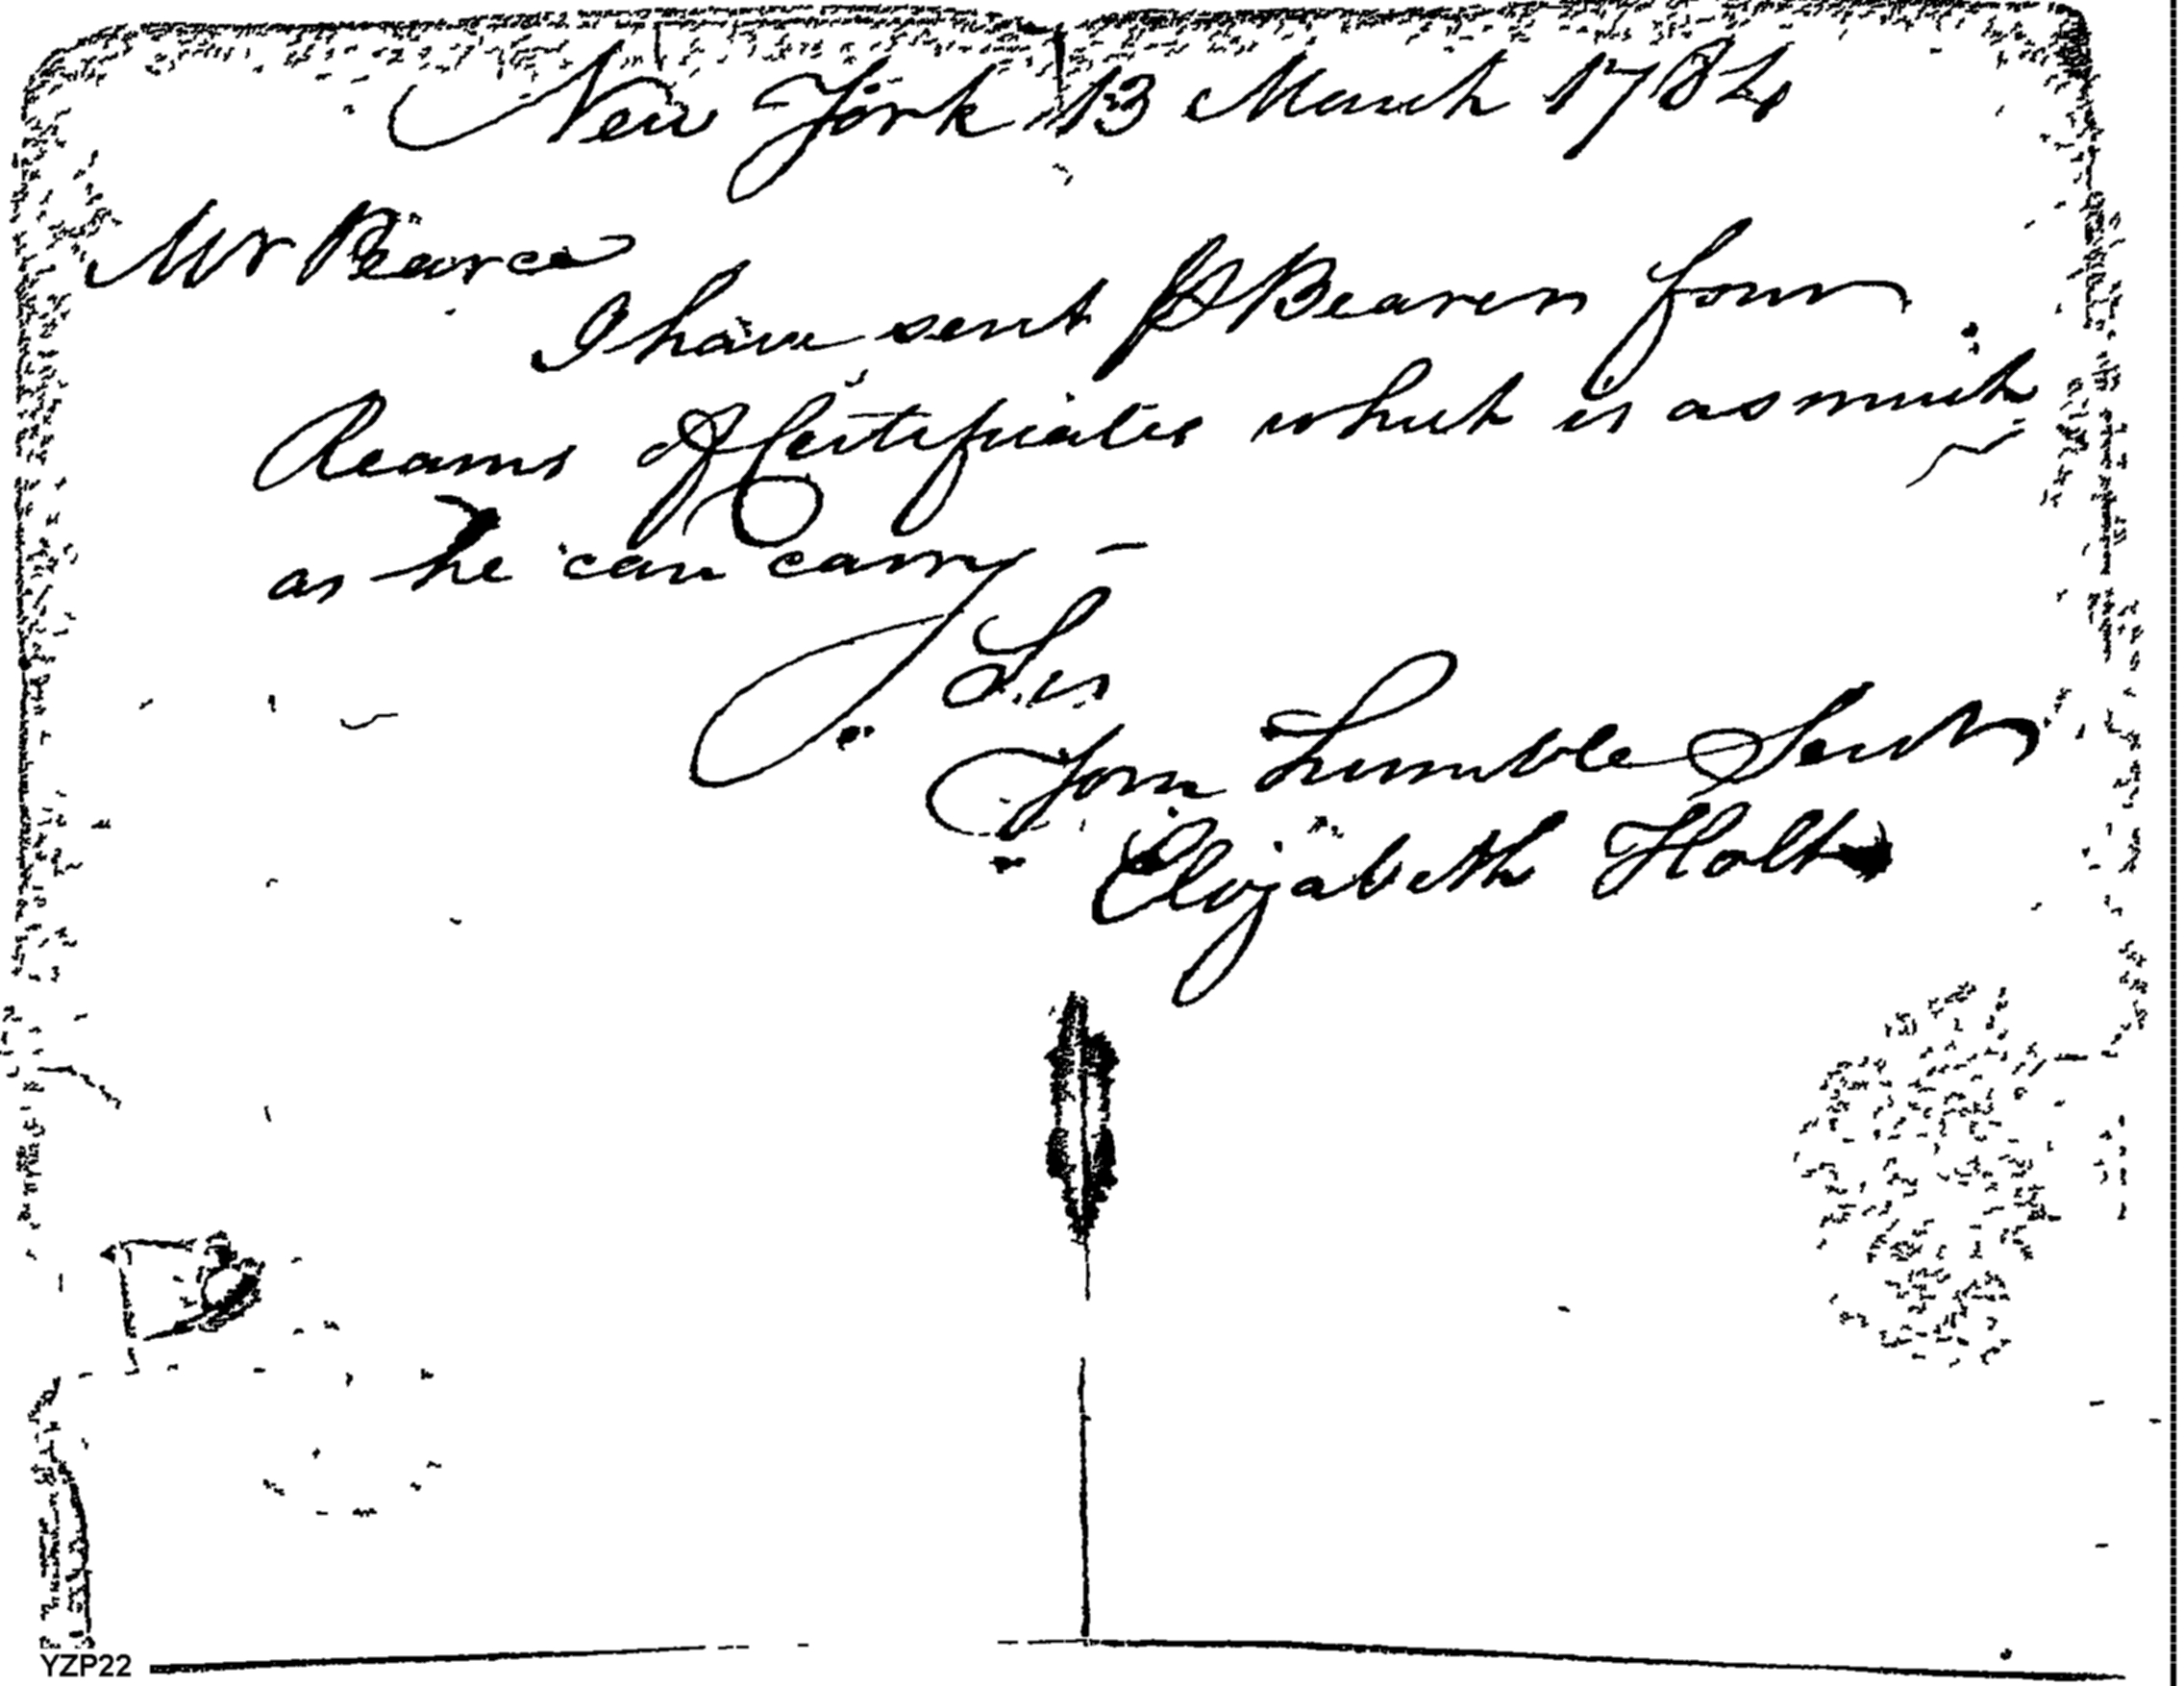 New York 13 March 1784
Mr Pearce
I have sent ⅌ Bearer four
Reams of Certificates which is as much
as he can carry –
Sir
Your humble Servt
Elizabeth Holt
YZP22